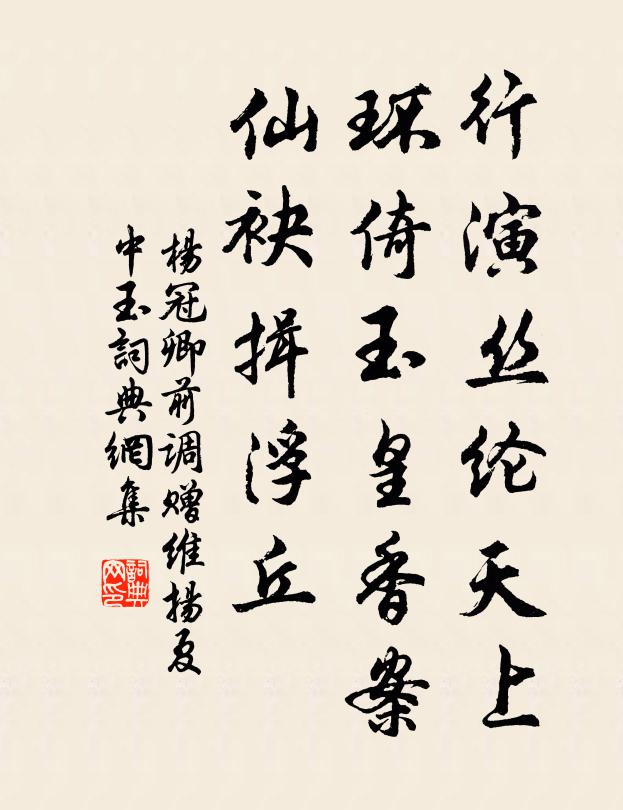 行演丝纶天上
环倚玉皇香案
仙袂揖浮丘
杨冠卿前调赠维扬夏
中玉词典網集
詞典
网印